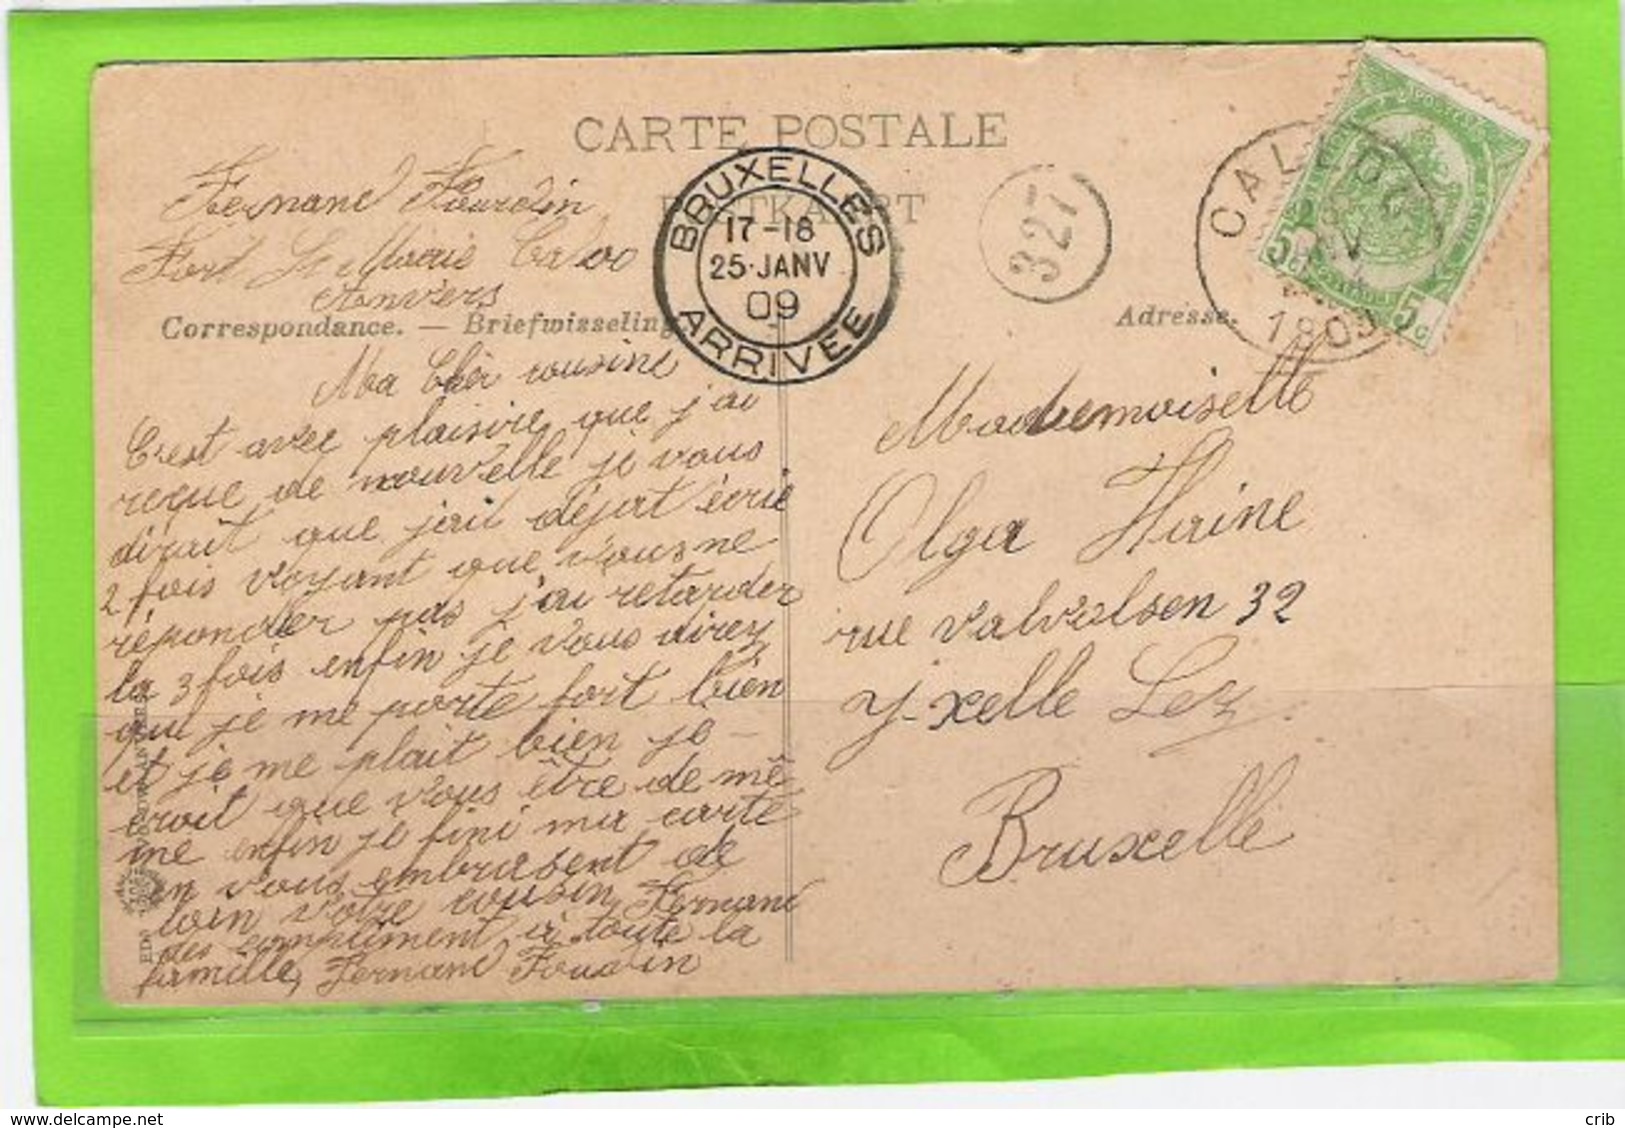 CARTE POSTALE
POSTKAART
Fernand Flourdin
Fort Ste Marie Caloo
Anvers
Correspondance. — Briefwisseling.
Adresse.
BRUXELLES
17-18
25·JANV
09
ARRIVEE
327
5c 5c
1809
Ma Chèr cousine
C'est avec plaisire que j'ai
reçue de nouvelle je vous
dirait que jait déjat écrie
2 fois voyant que vous ne
réponder pas j'ai retarder
la 3 fois enfin je vous direz
que je me porte fort bien
et je me plait bien je
croit que vous être de mê
me enfin je fini ma carte
en vous embrasent de
loin votre cousin Fernand
des compliment à toute la
famille, Fernand
Mademoiselle
Olga Haine
rue valvolsen 32
Y-xelle Lez
Bruxelle
www.delcampe.net
crib